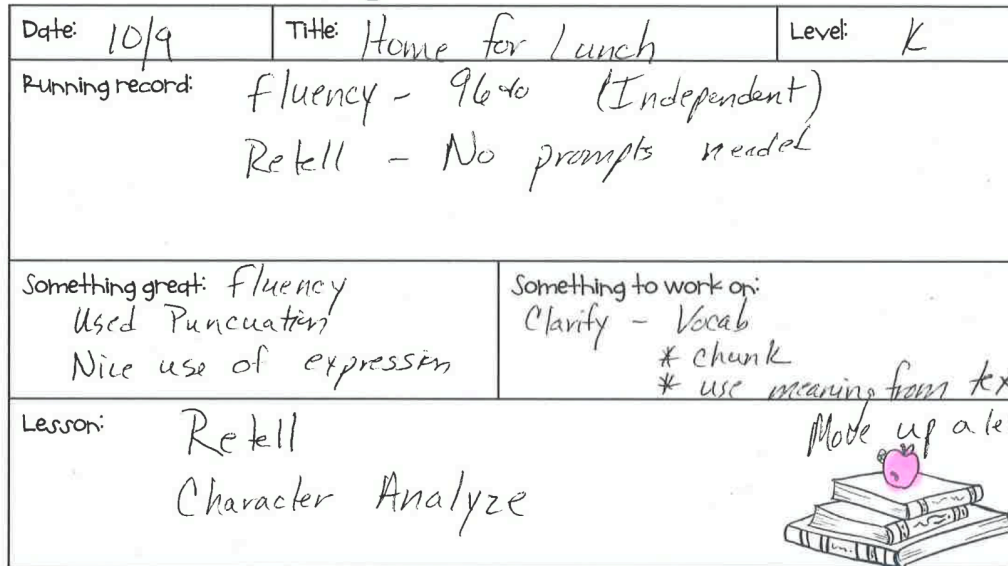 Date: 10/9 Title: Home for Lunch Level: K
Running record: Fluency - 96% (Independent)
Retell - No prompts needed
Something great: Fluency
Used Puncuation
Nice use of expression
Something to work on:
Clarify - Vocab
* chunk
* use meaning from tex
Lesson: Retell
Character Analyze
Move up a le